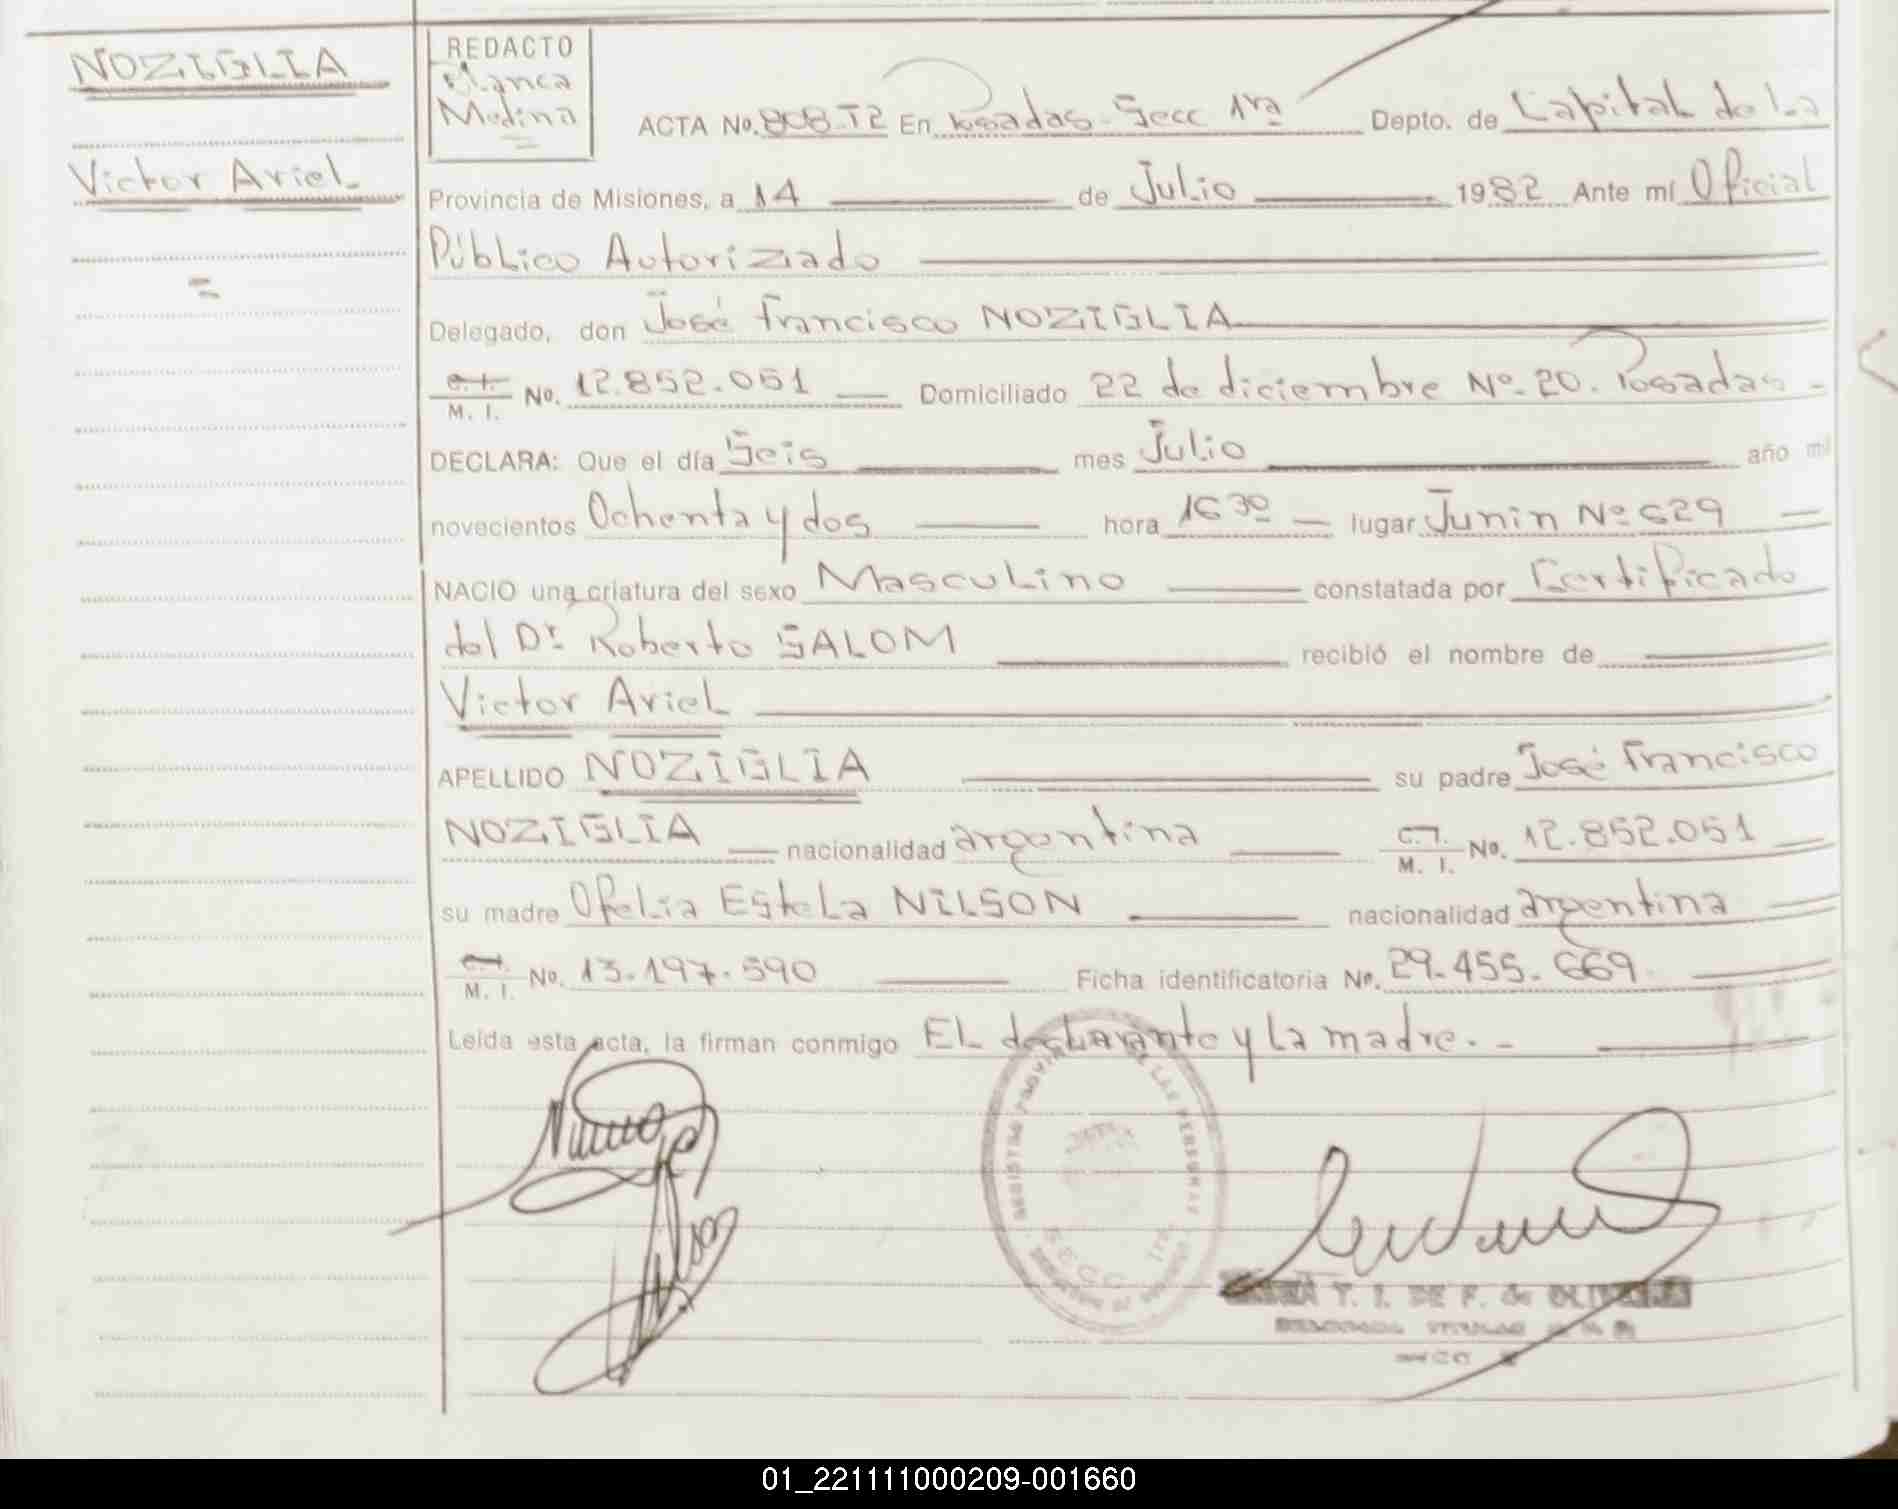 NOZIGLIA
Victor Ariel
=
REDACTO
Blanca
Medina
ACTA No. 808-T2 En Posadas-Secc 1ra Depto. de Capital de La
Provincia de Misiones, a 14 de Julio 1982 Ante mí Oficial
Público Autorizado
Delegado, don José Francisco NOZIGLIA
C. I.
M. I. No. 12.852.051 Domiciliado 22 de diciembre Nº-20. Posadas-
DECLARA: Que el día Seis mes Julio año mil
novecientos Ochenta y dos hora 16 30 lugar Junin Nº 629
NACIO una criatura del sexo Masculino constatada por Certificado
del Dr. Roberto SALOM recibió el nombre de
Victor Ariel
APELLIDO NOZIGLIA su padre José Francisco
NOZIGLIA nacionalidad argentina C. I.
M. I. No. 12.852.051
su madre Ofelia Estela NILSON nacionalidad argentina
C. I.
M. I. No. 13.197.590 Ficha identificatoria No. 29.455.669
Leída esta acta, la firman conmigo EL declarante y La madre.-
REGISTRO PROVIN DE LAS PERSONAS
SECC 1ra
T. I. DE F. de OLIVEIRA
01_221111000209-001660